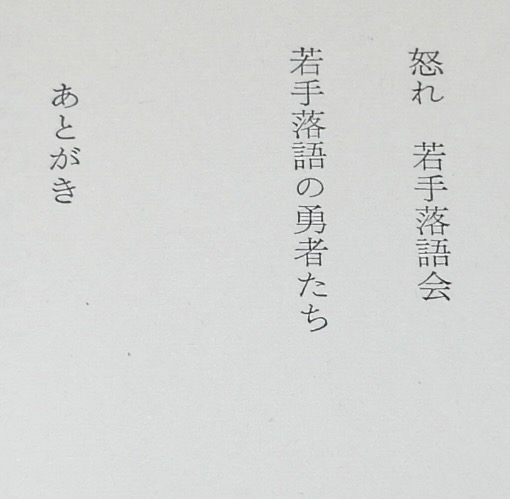 怒れ　若手落語会
若手落語の勇者たち
あとがき